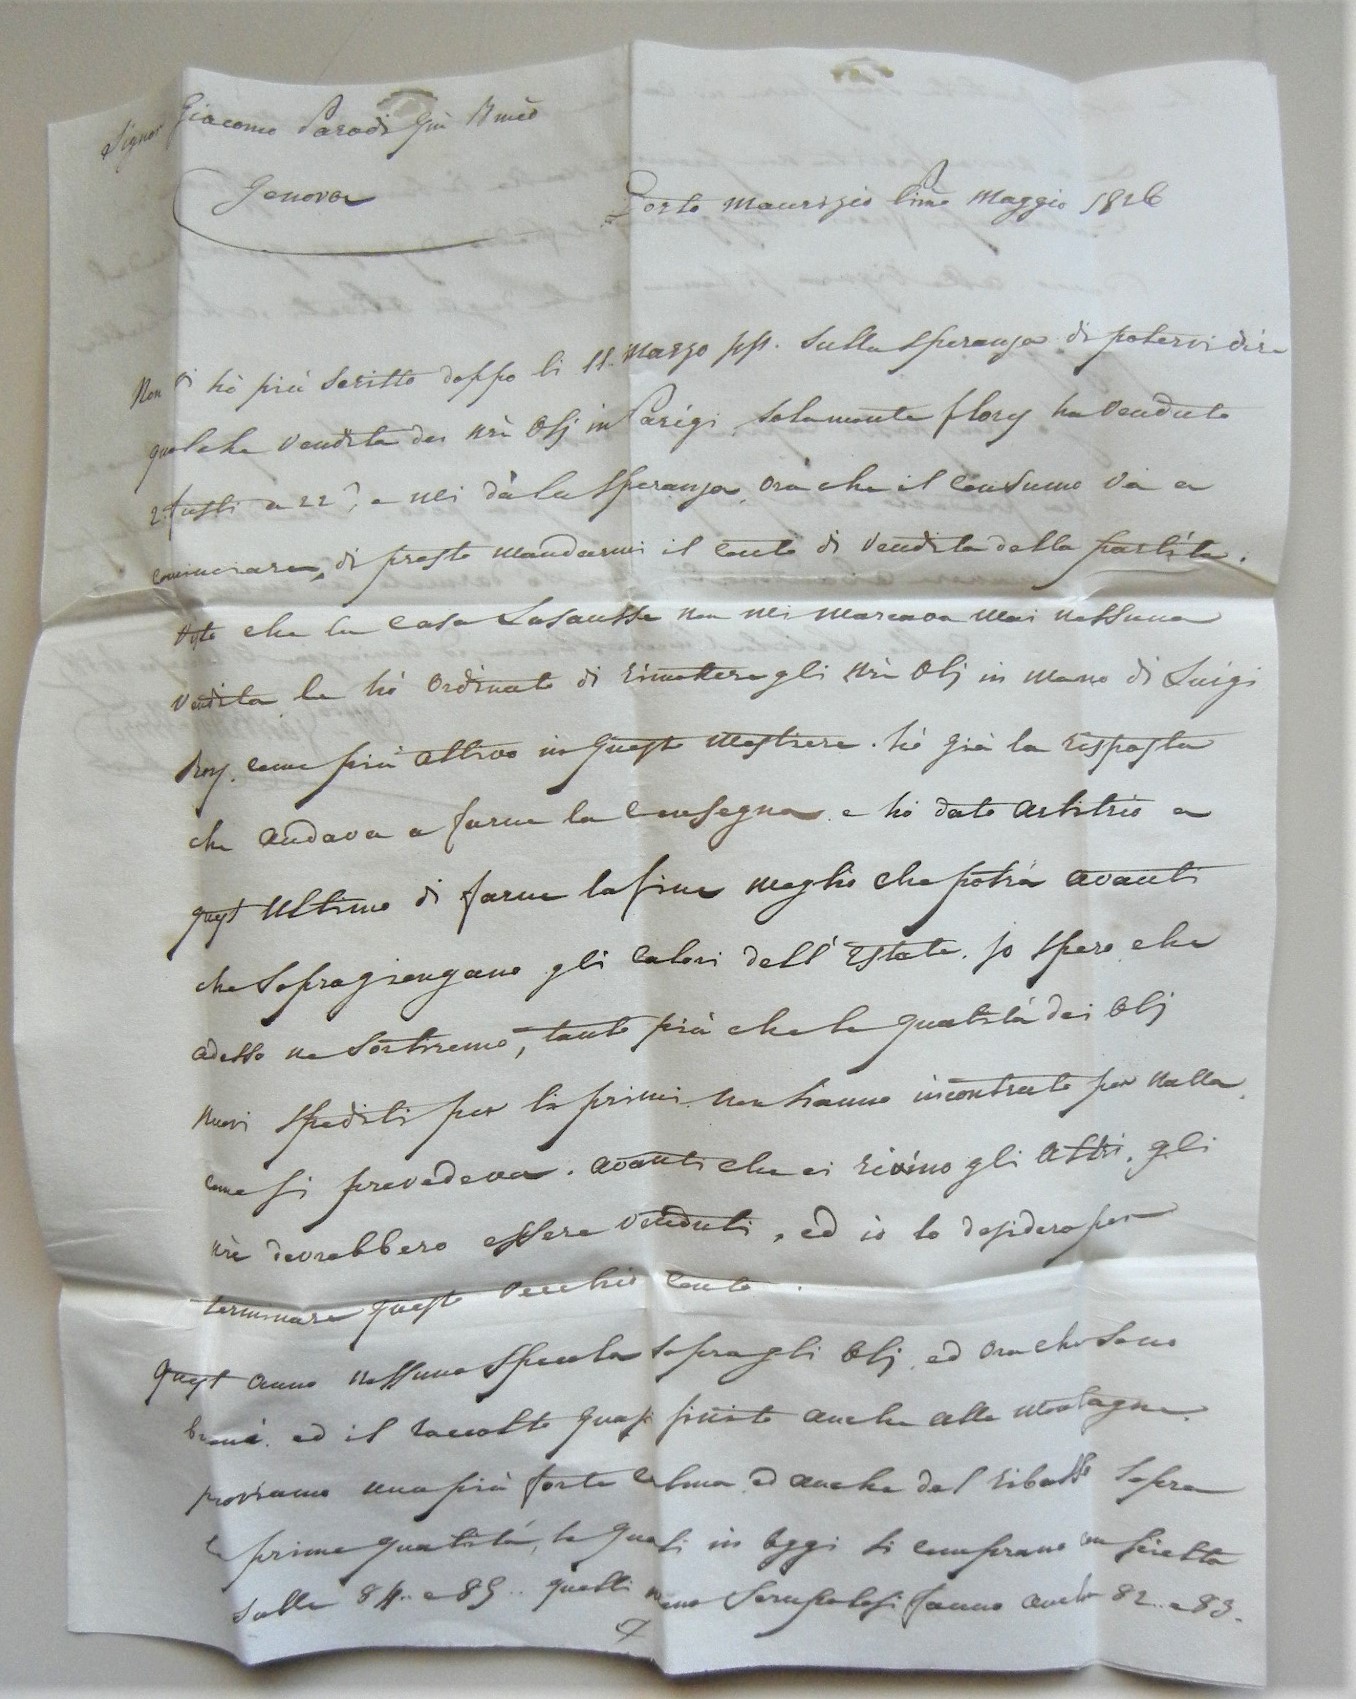 Signor Giacomo Parodi qm Bmeo
Genova
Porto Maurizio li Maggio 1826
Non vi hò più scritto doppo li 11. Marzo pp. sulla speranza di potervi dire
qualche vendita dei nri Olj in Parigi, solamente flory ha venduto
2 fusti a 22, e mi dà la speranza, ora che il consumo và a
cominciare, di presto mandarmi il conto di vendita della partita.
Visto che la casa Lasausse non mi marcava mai nessuna
vendita le hò ordinato di rimettere gli nri Olj in mano di Luigi
Roy, come più attivo in questo mestiere. hò già la risposta
che andava a farne la consegna, e hò dato arbitrio a
quest ultimo di farne la fine meglio che potrà avanti
che sopragiongano gli calori dell' Estate. jo spero che
adesso ne sortiremo, tanto più che le qualità dei Olj
nuovi spediti per li primi non hanno incontrato per nulla,
come si prevedeva. avanti che ci rivino gli altri, gli
nri dovrebbero essere venduti, ed io lo desidero per
terminare questo vecchio conto.
Quest anno nessuno specula sopra gli Olj, ed ora che sono
ed il raccolto quasi finito anche alle montagne,
proviamo una più forte calma, ed anche del ribasso sopra
le prime qualità, le quali in oggi si comprano con scielta
sulle 84.. e 85.. quelli meno scrupolosi fanno anche 82.. e 83.